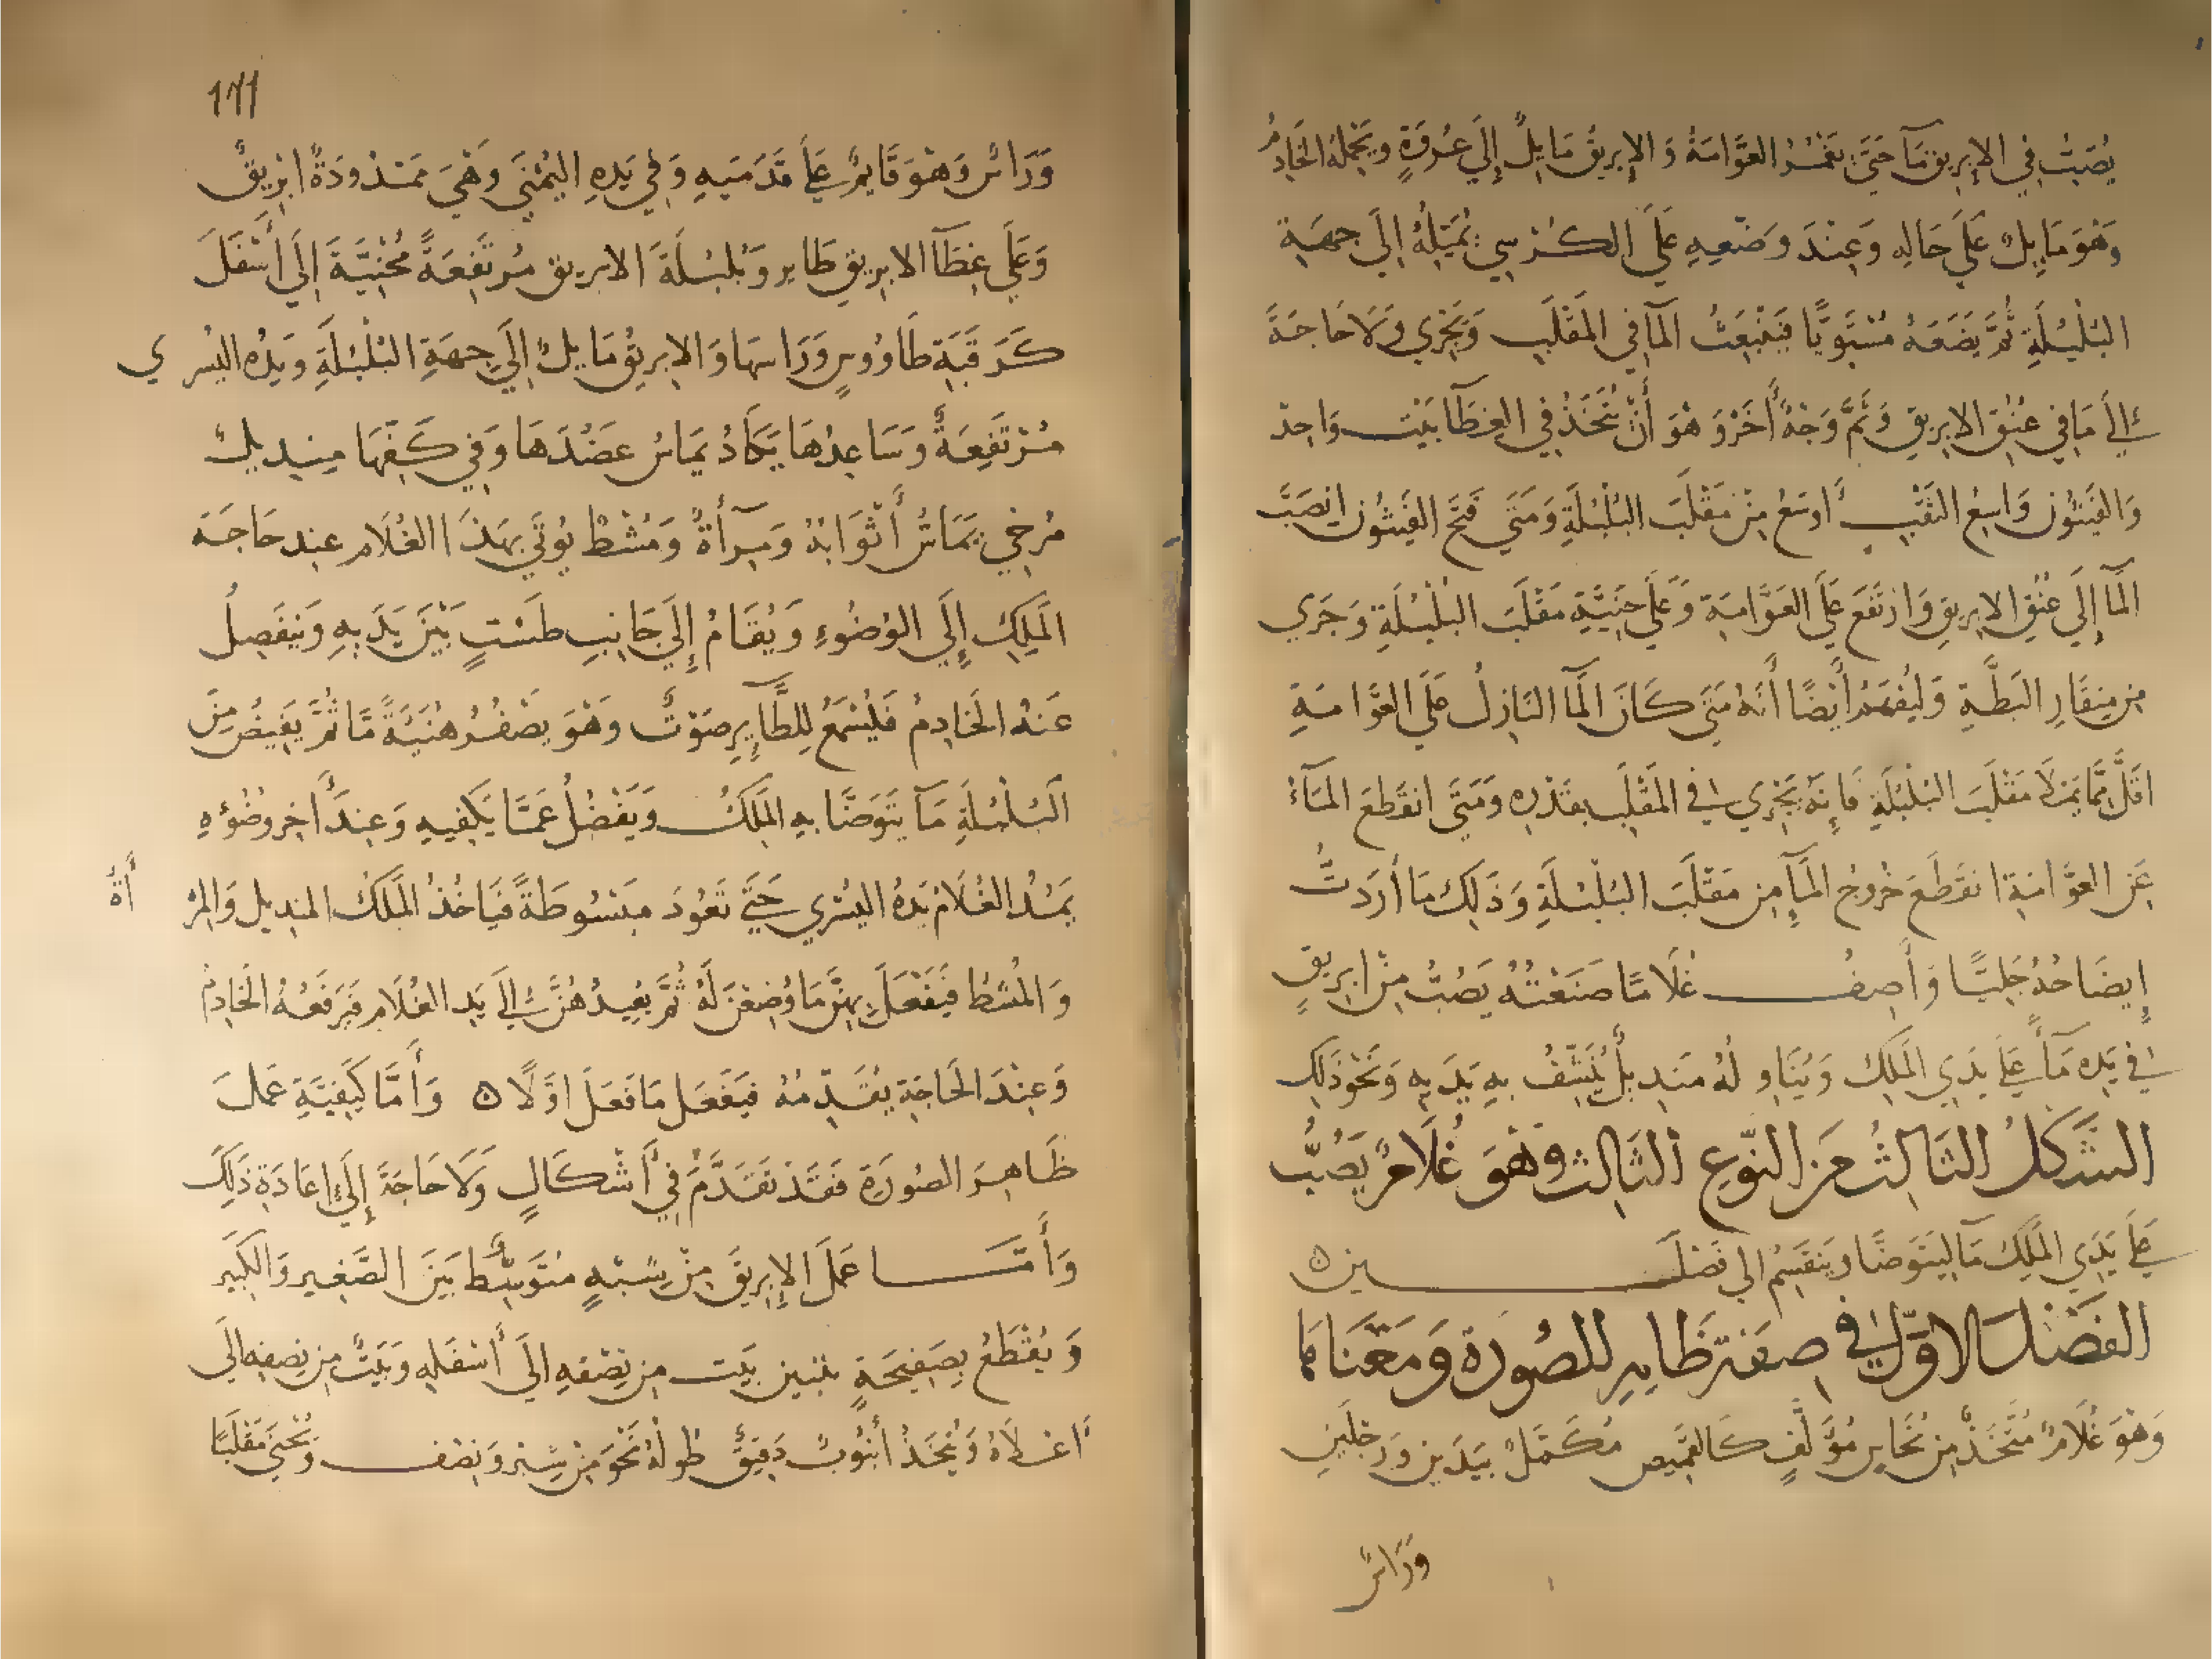 يُصَبُّ في الإبريق مآ حَتَّى تغمُر العَوَّامَةُ وَ الإبريق مَايلٌ إلَي عُروَةٍ ويَحْمِلهُ الخَادِمُ
وَهْوَ مَايِلٌ عَلَي حَالِهِ وَعِنْدَ وَضْعِهِ عَلَي الكُرْسِي يُمَيّلُهُ إلَي جِهَةِ
البُلْبُلَةِ ثُمَّ يَضَعَهُ مُسْتَوِيًا فَيَنْبَعَثُ المآ في المَقْلَبِ وَيَجْرِي وَلَا حَاجَةَ
إلَي مَا في عُنُقِ الابريق وَثَمَّ وَجْهٌ أخَرْ وَهْوَ أنْ يُتَّخَذُ في الغِطَا بَيْتٌ وَاحِدٌ
وَالفَيثُون وَاسِعُ الثَّقْبِ أوسَعُ مِنْ مَقْلَبَ البُلْبُلَةِ وَمَتَي فُتِحَ الفَيثُون انصَبَّ
المآ إلَي عُنُقِ الابريقِ وَارتَفَعَ عَلَي العَوَّامَةِ وَعَلَي حَنِيَّةِ مَقْلَبَ البُلْبُلَةِ وَجَرَي
مِن مِنقَارِ البَطَّةِ وَليُفْهَمْ أيْضًا أنَّهُ مَتَي كَانَ المآ النَازِلُ عَلَي العَوَّامَةِ
اقَلَّ مِمَّا يَملَا مَقْلَبَ البُلْبُلَةِ فَإنَّهُ يَجْرِي في المَقْلَبِ بقَدْرِهِ وَمَتَي انقَطَعَ المَآءُ
عَنِ العَوَّامَةِ انقَطَعَ خُروجُ المآءِ مِن مَقْلَبَ البُلْبُلَةِ وَذَلِكَ مَا أَرَدتُ
إيضَاحُهُ جَلِيًّا وَأَصِفُ غُلَامًا صَنَعْتُهُ يَصُبُّ مِنْ ابريقٍ
في يَدِه مآءً عَلَي يَدَي المَلِكِ وَيُنَاولُهُ مَنديلٌ يُنَشّفُ بِهِ يَدَيهِ وَنَحْوَ ذَلِكَ
الشَّكْلُ الثَالثُ مَن النّوعِ الثَالثِ وَهْوَ غُلَامٌ يَصُبُّ
عَلَي يَدَي المَلِكَ مآ ليَتَوَضَّا وَينقَسِمُ الي فَصْلَــين ه
الفَصْل الاوّل في صِفَة ظَاهِرِ للصُورَة وَمَعْنَاهَا
وَهْوَ غُلَامٌ مُتَّخَذٌ مِن نُحَاسٍ مُؤَلَّفٍ كَالقَميص مُكَمَّلٌ بيَدَينِ وَرَجْلَينِ
وَرَاسٌ
١٧١
وَرَاسٌ وَهْوَ قَايِمٌ عَلَي قَدَمَيهِ وَفي يَدِهِ اليُمْنَي وَهْيَ مَمْدُودَةٌ ابْرِيقٌ
وَعَلَي غِطَآ الابريق طَاير وَبُلبُلَةَ الابريق مُرتَفِعَةً مُحْنِيَّةَ إلَي أَسْفَلَ
كَرَقَبَةِ طَاوُوسٍ وَرَاسهَا وَالابريقُ مَايلٌ إلَي جِهَةِ البُلْبُلَةِ وَيَدُه اليُسري
مُرْتَفِعَةٌ وَسَاعِدُهَا يَكَادُ يَمَاسُ عَضُدَهَا وَفي كَفّهَا مِنديلٌ
مُرخَي يَمَاسُّ أثْوَابُهُ وَمِرآةٌ وَمُشْطٌ يُوتَي بهَذَا الغُلَام عِند حَاجَة
المَلِكِ إلَي الوُضُوءِ وَيُقَامُ إلَي جَانِبِ طَسْتٍ بَيْنَ يَدَيهِ وَيَنفَصِلُ
عَنْهُ الخَادِمُ فَيُسْمَعُ لِلطَّآيرِ صَوْتٌ وَهْوَ يَصْفُرُ هُنَيَّةً مَّا ثُمَّ يَفِيضُ مِنَ
البُلْبُلَةِ مَآ يَتَوَضَّا بهِ المَلِكُ وَيَفْضُلُ عَمَّا يَكفِيهِ وَعِندَ أخر وضُوُءهِ
يَمُدُّ الغُلَامُ يَدُهُ اليُسْرَي حَتَّي تَعُودَ مَبْسُوطَةً فيَاخُذُ المَلِكُ المنديل وَالمِرْأَةَ
وَالمُشْط فَيَفْعَلُ بهِنَّ مَا وُضِعْنَ لَهُ ثُمَّ يُعِيدُهُنَّ إلَي يَدِ الغُلَامِ فَيَرفَعُهُ الخَادِمُ
وَعِنْدَ الحَاجَةِ يُقَدِّمُهُ فيَفْعَل مَا فَعَلَ اوَّلًا ه وَأمَّا كَيفيَّةِ عَمَلَ
ظَاهِرَ الصُورَةِ فَقَدْ تَقَدَّمَ في أشْكَالٍ وَلَا حَاجَةَ إلَي إعَادَةِ ذَلِكَ
وَأمَّــا عَمَلَ الإبريقَ مِنْ شَبَهٍ مُتَوَسِّط بَيْنَ الصَّغيرِ وَالكَبير
وَيُقْطَعُ بِصَفيحَةٍ بَيتين بَيت مِن نِصْفِهِ إلَي أَسْفَلِهِ وَبَيتٌ مِن نِصفِهِ إلَي
اعْلَاهُ وَيُتَّخَذُ أُنبُوبٌ دَقيقٌ طُولُهُ نَحْوَ مِن شِبْرٍ وَنِصْف وَيُحْنَي مَقْلَبًا